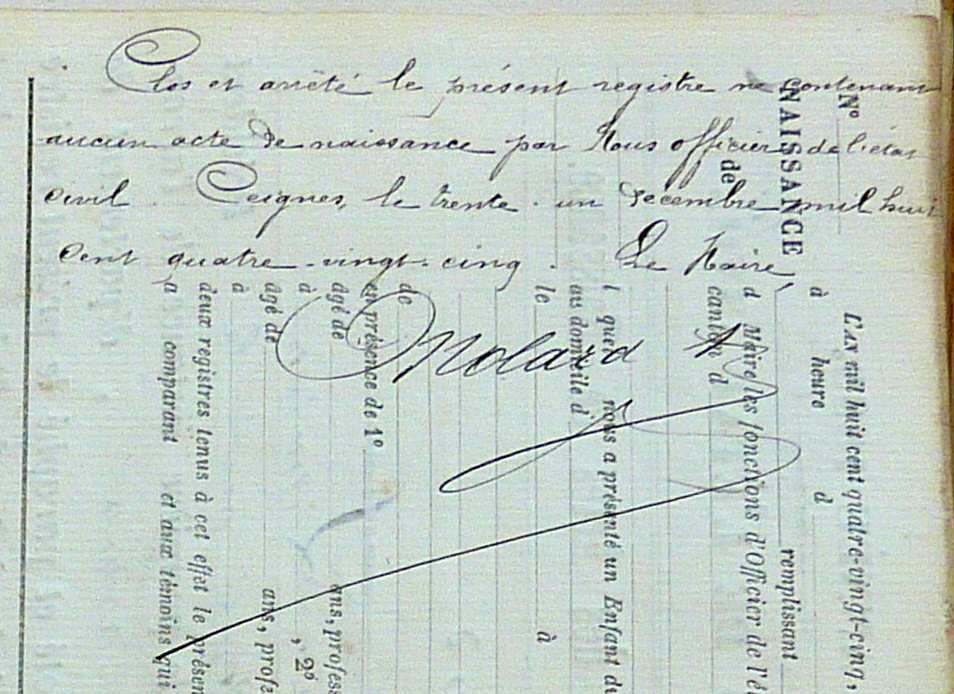 Clos et arrêté le présent registre ne contenant
aucun acte de naissance par Nous officier de l'état
civil. Ceignes, le trente-un décembre mil huit
cent quatre-vingt-cinq. Le Maire,
Molard
N°
NAISSANCE
de
L'AN mil huit cent quatre-vingt-cinq,
à heure d
remplissant
d Maire les fonctions d'Officier de l'é
canton d
l quel nous a présenté un Enfant du
au domicile d
le à
de
en présence de 1°
âgé de ans, profess
à , 2°
âgé de ans, profe
à
deux registres tenus à cet effet le présen
a comparant et aux témoins qui